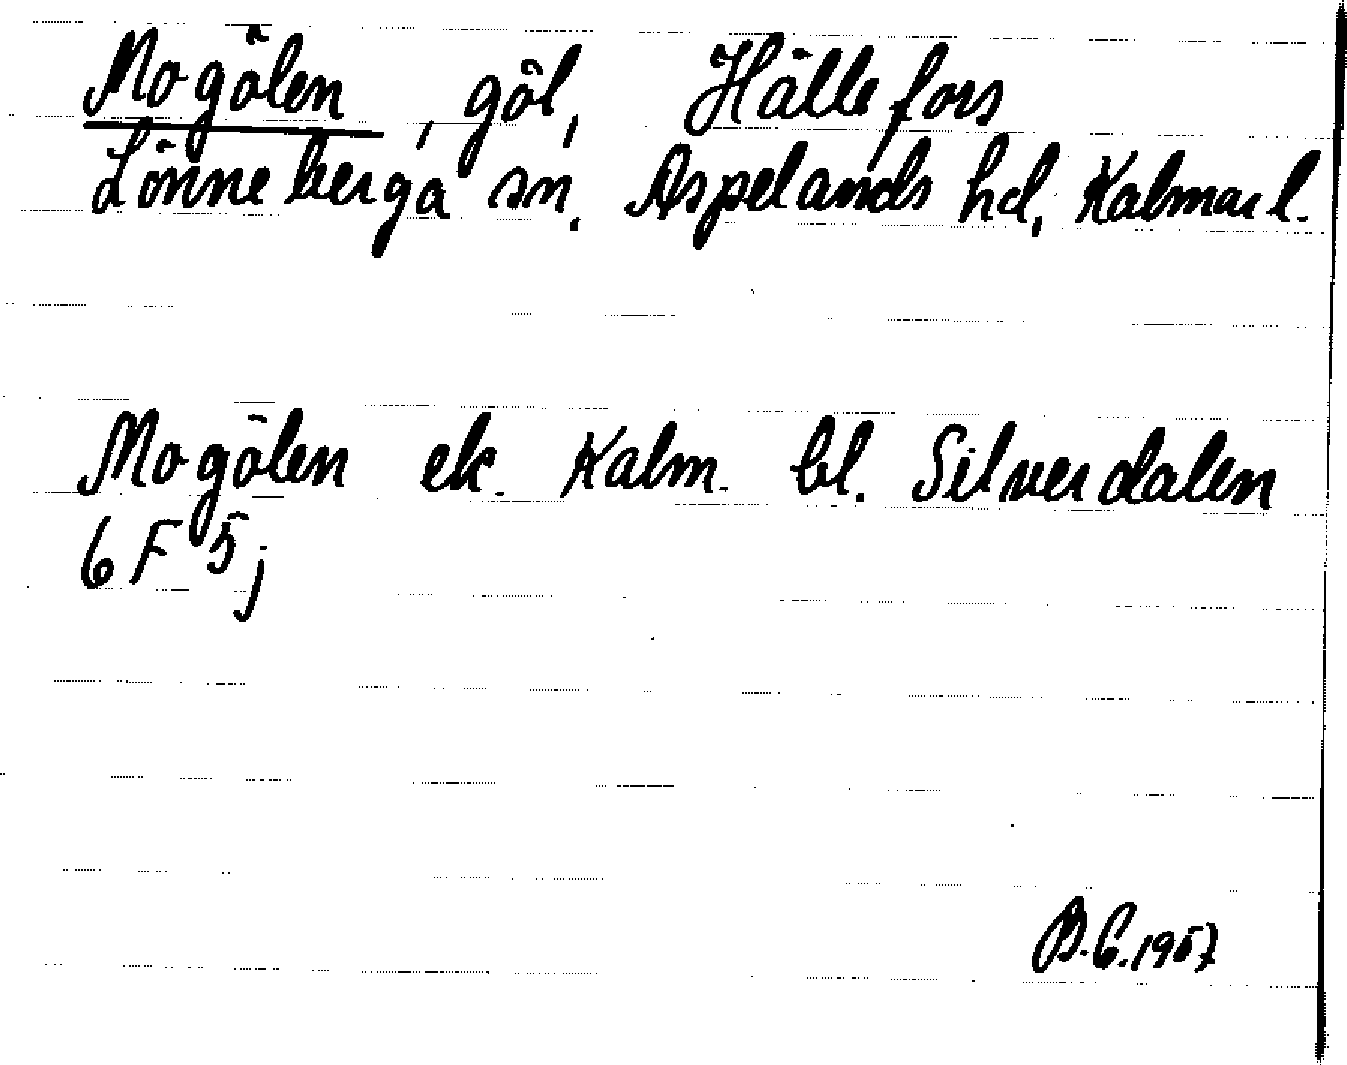 Mogölen, göl, Hällefors
Lönneberga sn. Aspelands hd, Kalmar l.
Mogölen ek. Kalm. bl. Silverdalen
6 F 5 j
B.C.1967